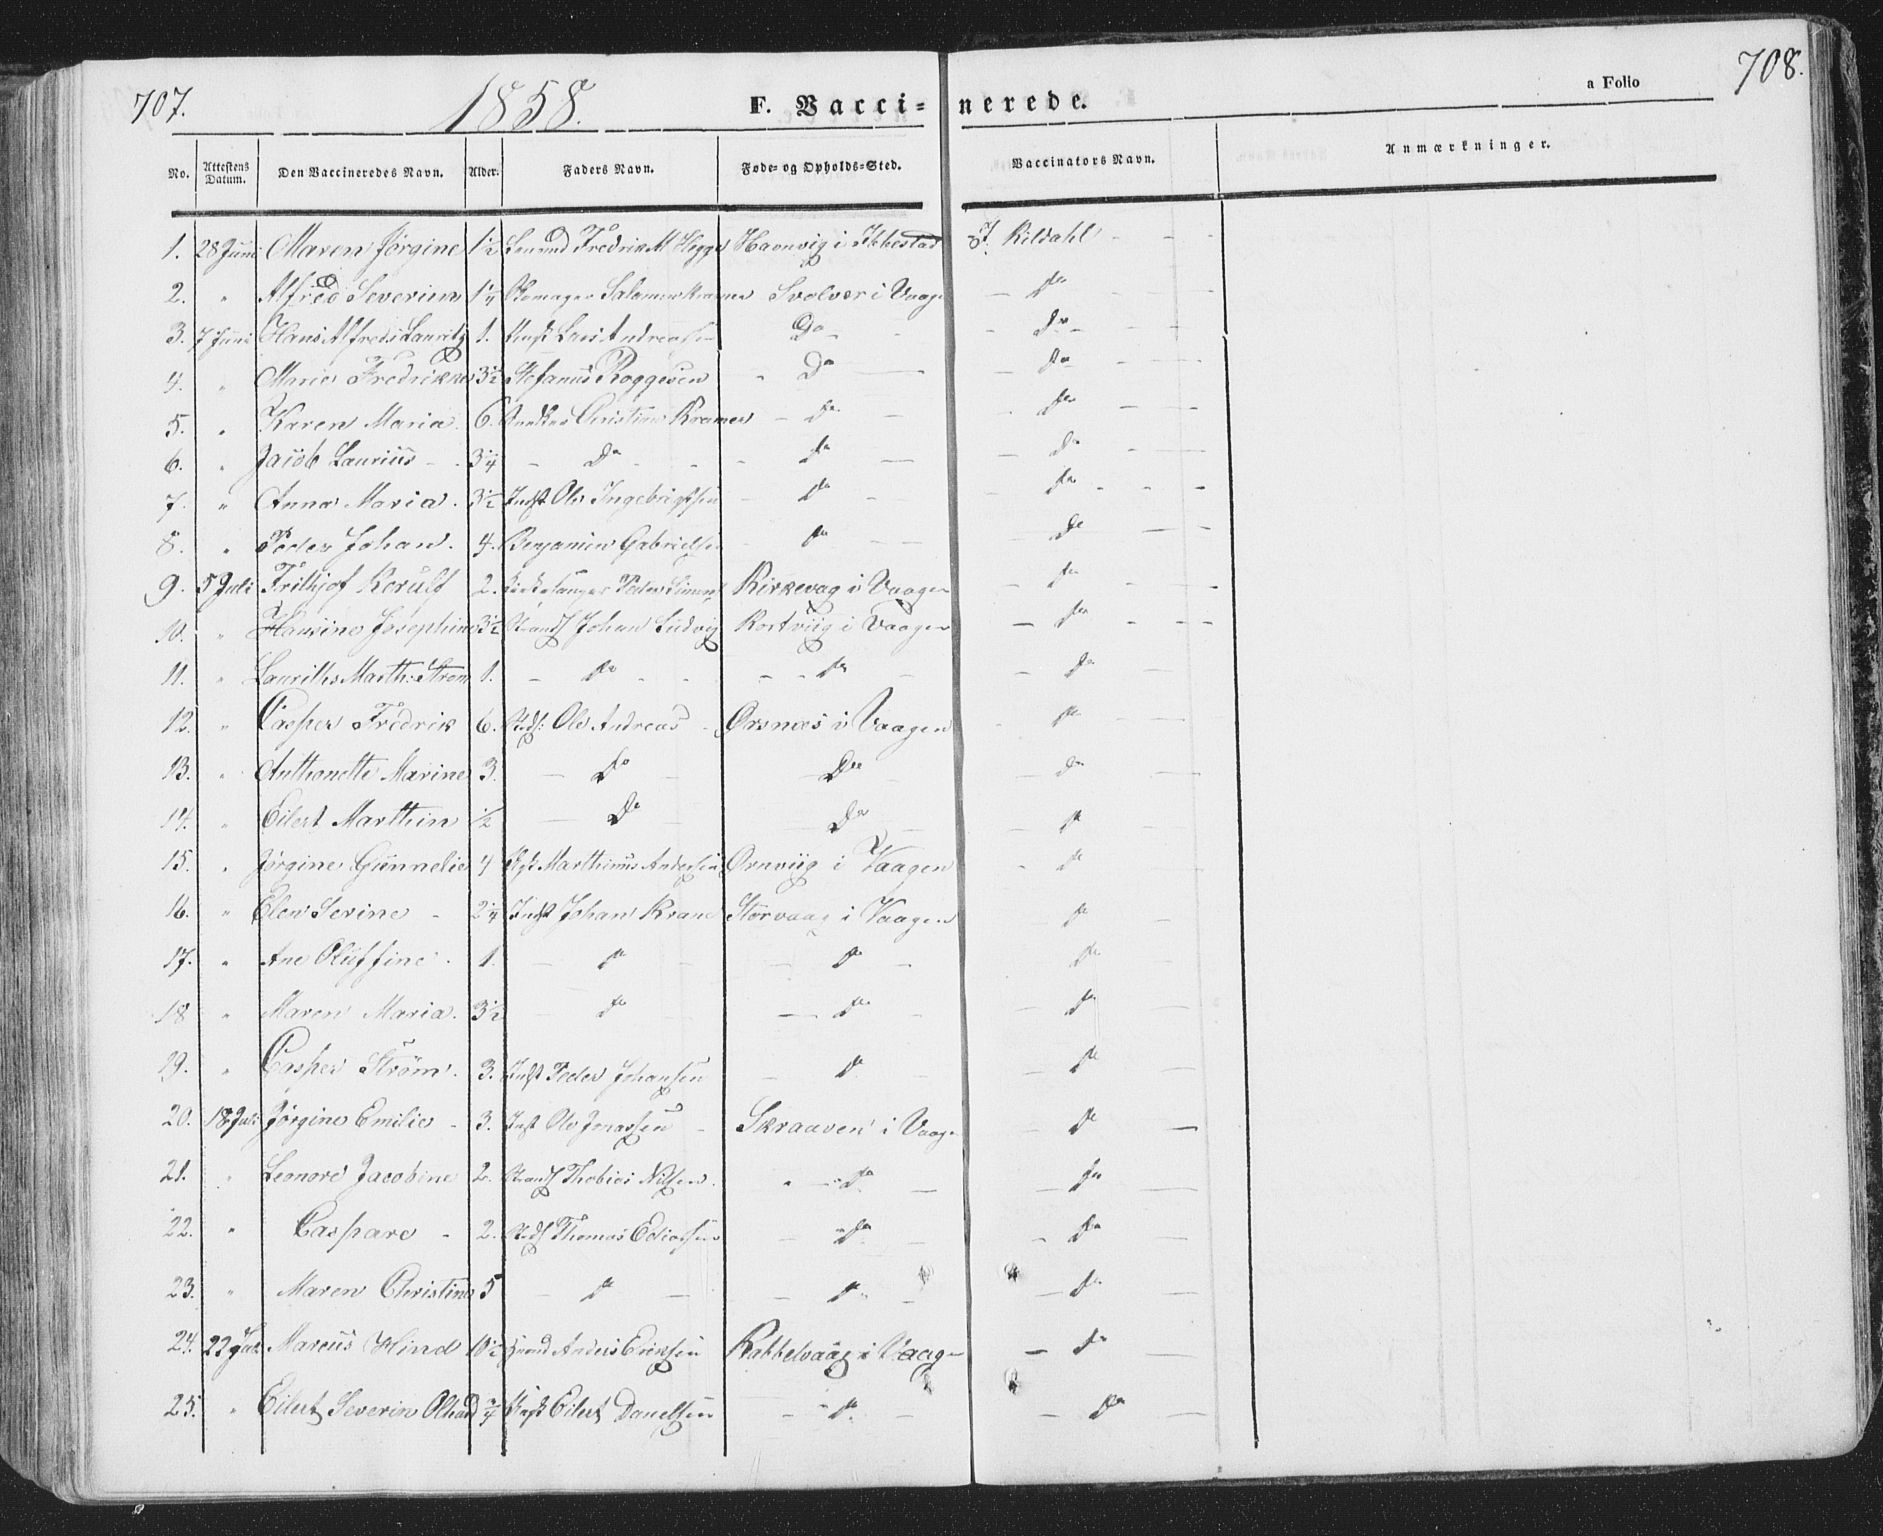 707.
1858.
F. Vacci-
nerede.
a Folio
708.
No. Attestens Datum. Den Vaccineredes Navn. Alder. Faders Navn. Føde- og Opholds-Sted. Vaccinators Navn. Anmærkninger.
1. 28 Juni Maren Jørgine 1½ Fredrik M Hegge Havnvig i Ibbestad J. Kildahl
2. " Alfred Severin 1¼ Salomon Kramer Svolvær i Vaage do
3. 7 Juni Hans Alfred Lauritz 1. Lars Andreasen Do Do
4. " Marie Fredrikke 3½ Stefanus Roggesen Do Do
5. " Karen Maria 6. Christian Kramer do do
6. " Jacob Laurius 3¼ Do Do Do
7. " Anna Maria. 3½ Indst Ole Ingebrigtsen do do
8. " Peder Johan. 4. Benjamin Gabrielsen do do
9. 5 Juli Frithjof Korulf 2. Kirkesanger Peder Simons Kirkevag i Vaagen do
10. " Hansine Josephine 3½ Strands Johan Ludvig Kortviig i Vaagen do
11. " Laurits Marth: Strøm 1. do do do
12. " Casper Fredrik 6. Ole Andreas Ørsnæs i Vaagen do
13. " Anthonette Marine 3. Do Do Do
14. " Eilert Marthin ½ Do Do do
15. " Jørgine Gunnelie 4 Marthinus Andersen Ørnviig i Vaagen do
16. " Elen Serine 2¼ Indst Johan Krane Storvaag i Vaagen do
17. " Ane Oluffine. 1. do do do
18 " Maren Maria. 3½ do do do
19. " Casper Strøm. 3. Indst Peder Johansen do do
20. 18 Juli Jørgine Emilie 3. Inst Ole Jonassen Skraaven i Vaage do
21. " Leonore Jacobine 2. Strands Thobias Nilsen. do do
22. " Caspare 2. Thomas do do
23. " Maren Christine 5 do do do
24. 22 Juli Marcus Hind 10½ Anders Eriksen Kabbelvaag i Vaage do
25. " Eilert Severin ¾ Eilert Danelsen do do